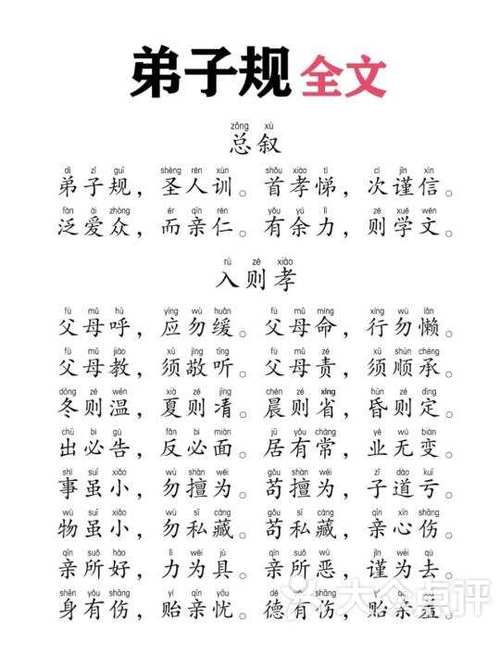 弟子规 全文
zǒng xù
总叙
dì zǐ guī shèng rén xùn shǒu xiào tì cì jǐn xìn
弟子规，圣人训。首孝悌，次谨信。
fàn ài zhòng ér qīn rén yǒu yú lì zé xué wén
泛爱众，而亲仁。有余力，则学文。
rù zé xiào
入则孝
fù mǔ hū yìng wù huǎn fù mǔ mìng xíng wù lǎn
父母呼，应勿缓。父母命，行勿懒。
fù mǔ jiào xū jìng tīng fù mǔ zé xū shùn chéng
父母教，须敬听。父母责，须顺承。
dōng zé wēn xià zé qìng chén zé xǐng hūn zé dìng
冬则温，夏则清。晨则省，昏则定。
chū bì gào fǎn bì miàn jū yǒu cháng yè wú biàn
出必告，反必面。居有常，业无变。
shì suī xiǎo wù shàn wéi gǒu shàn wéi zǐ dào kuī
事虽小，勿擅为。苟擅为，子道亏。
wù suī xiǎo wù sī cáng gǒu sī cáng qīn xīn shāng
物虽小，勿私藏。苟私藏，亲心伤。
qīn suǒ hào lì wèi jù qīn suǒ wù jǐn wèi qù
亲所好，力为具。亲所恶，谨为去。
shēn yǒu shāng yí qīn yōu dé yǒu shāng yí qīn xiū
身有伤，贻亲忧。德有伤，贻亲羞。
大众点评